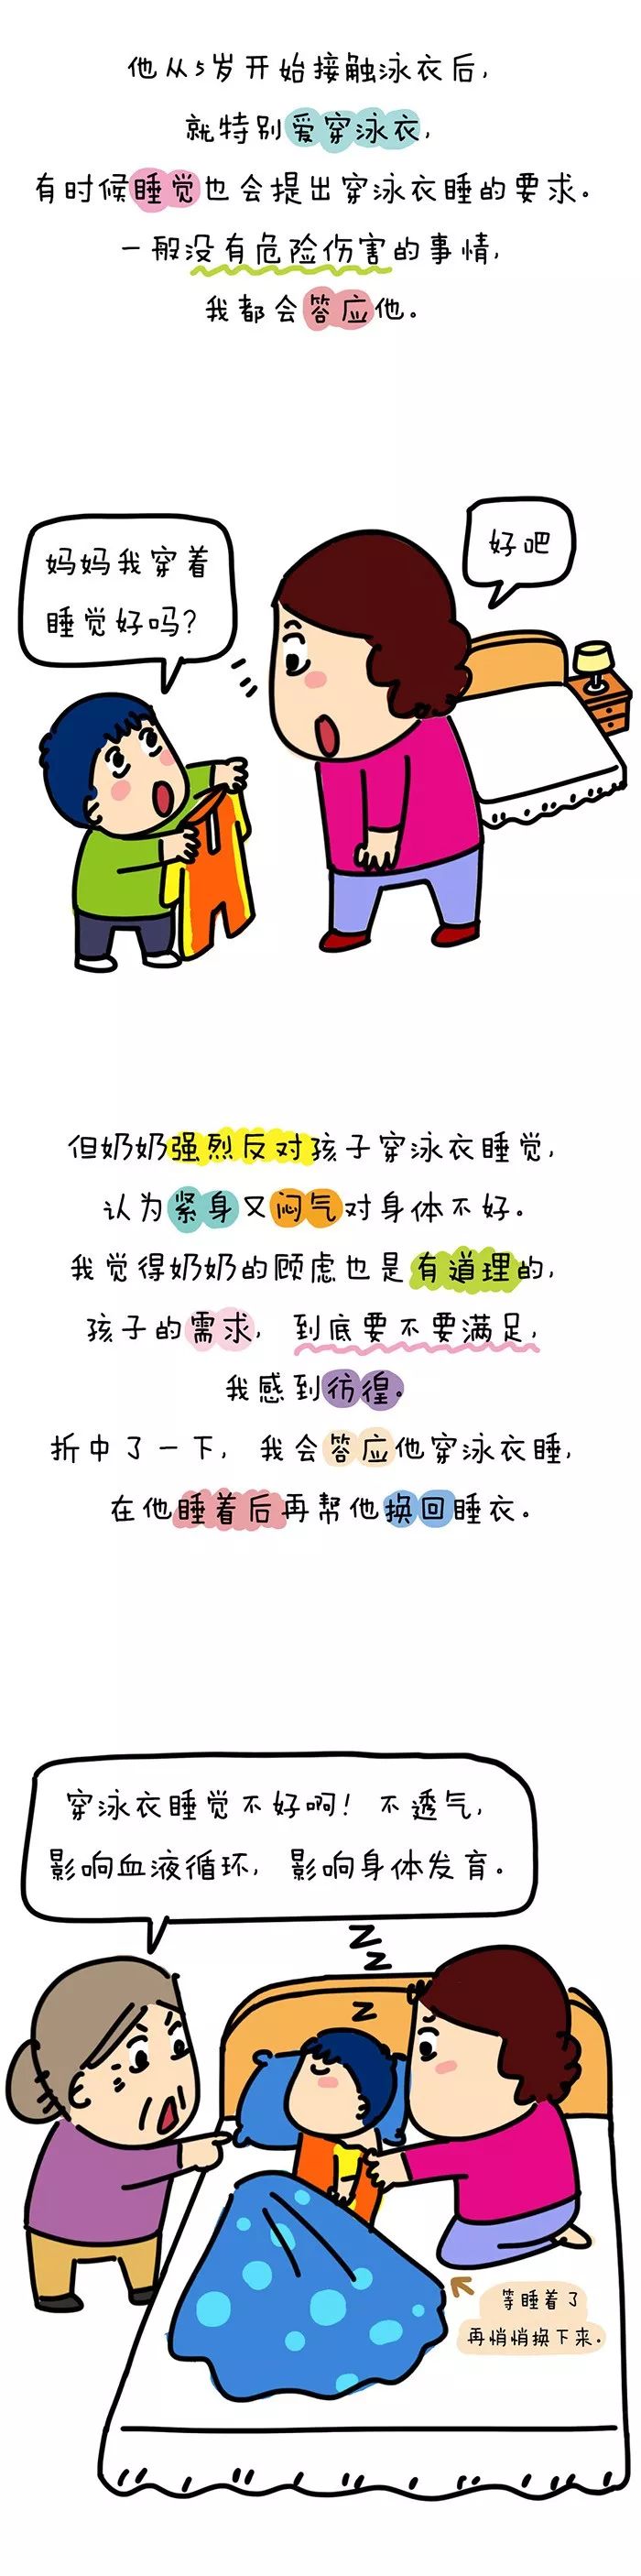 他从5岁开始接触泳衣后,
就特别爱穿泳衣,
有时候睡觉也会提出穿泳衣睡的要求。
一般没有危险伤害的事情,
我都会答应他。
妈妈我穿着
睡觉好吗?
好吧
但奶奶强烈反对孩子穿泳衣睡觉,
认为紧身又闷气对身体不好。
我觉得奶奶的顾虑也是有道理的,
孩子的需求, 到底要不要满足,
我感到彷徨。
折中了一下, 我会答应他穿泳衣睡,
在他睡着后再帮他换回睡衣。
穿泳衣睡觉不好啊! 不透气,
影响血液循环, 影响身体发育。
Z
Z
Z
等睡着了
再悄悄换下来.